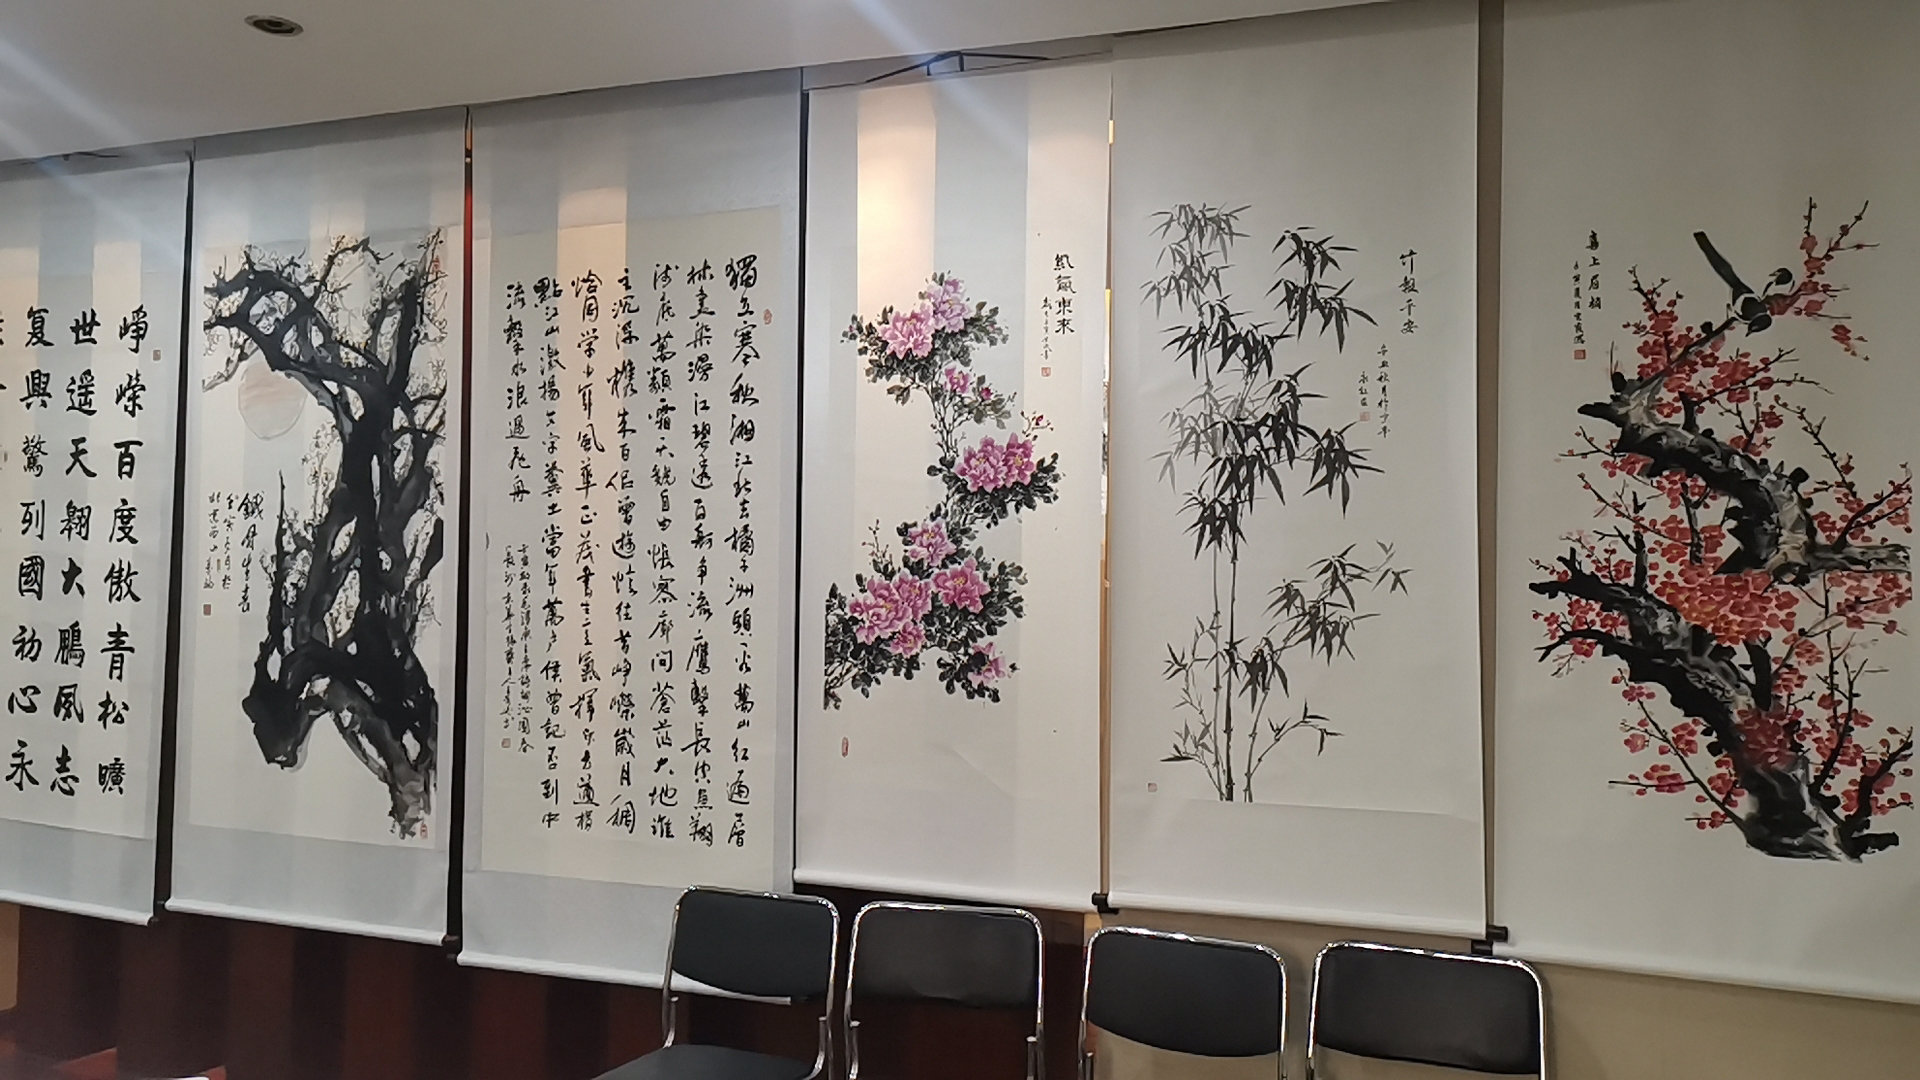 峥嵘百度傲青松曠
世遥天翱大鵬風志
复興驚列國初心永
鐵骨生春
獨立寒秋湘江北去橘子洲頭看萬山红遍層
林盡染漫江碧透百舸争流鹰擊長空魚翔
浅底萬類霜天競自由怅寥廓问蒼茫大地谁
主沉浮携来百侣曾遊忆往昔峥嵘歲月稠
恰同学少年風華正茂書生意氣揮斥方遒指
點江山激揚文字糞土當年萬户侯曾記否到中
流擊水浪遏飛舟
紫氣東來
竹報平安
辛丑秋月作
喜上眉梢